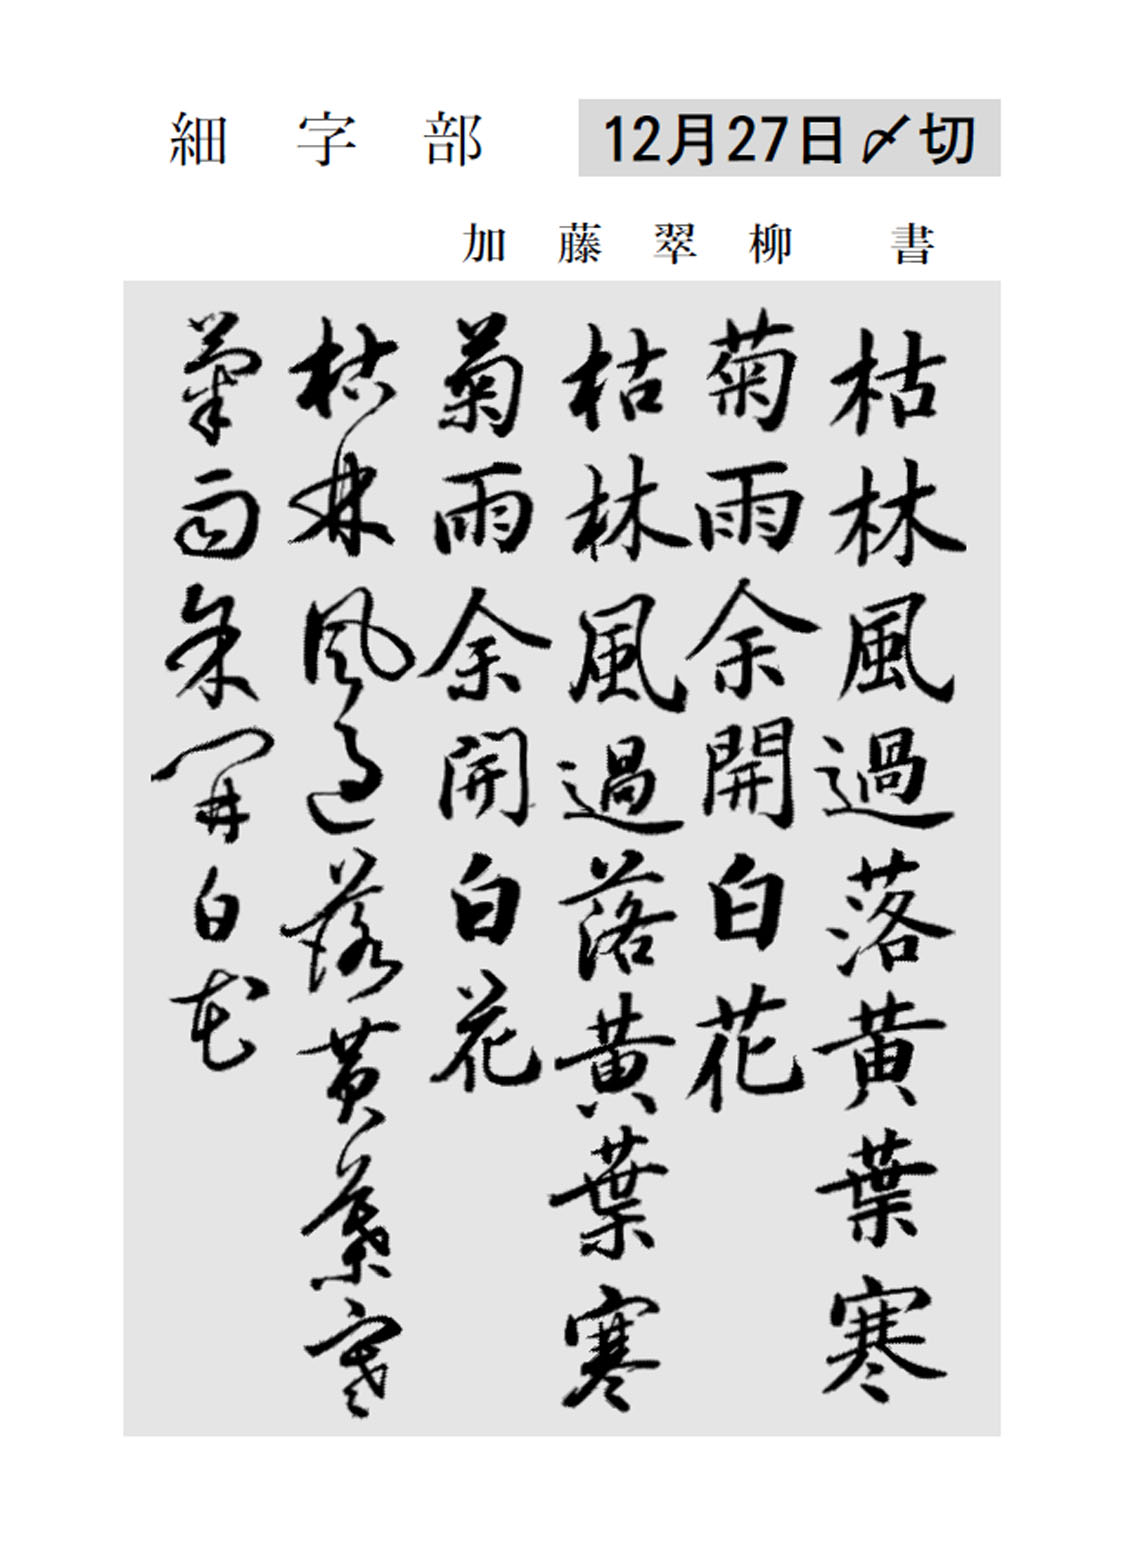 細字部
12月27日〆切
加藤翠柳 書
枯林風過落黄葉寒
菊雨余開白花
枯林風過落黄葉寒
菊雨余開白花
枯林風過落黄葉寒
菊雨余開白花